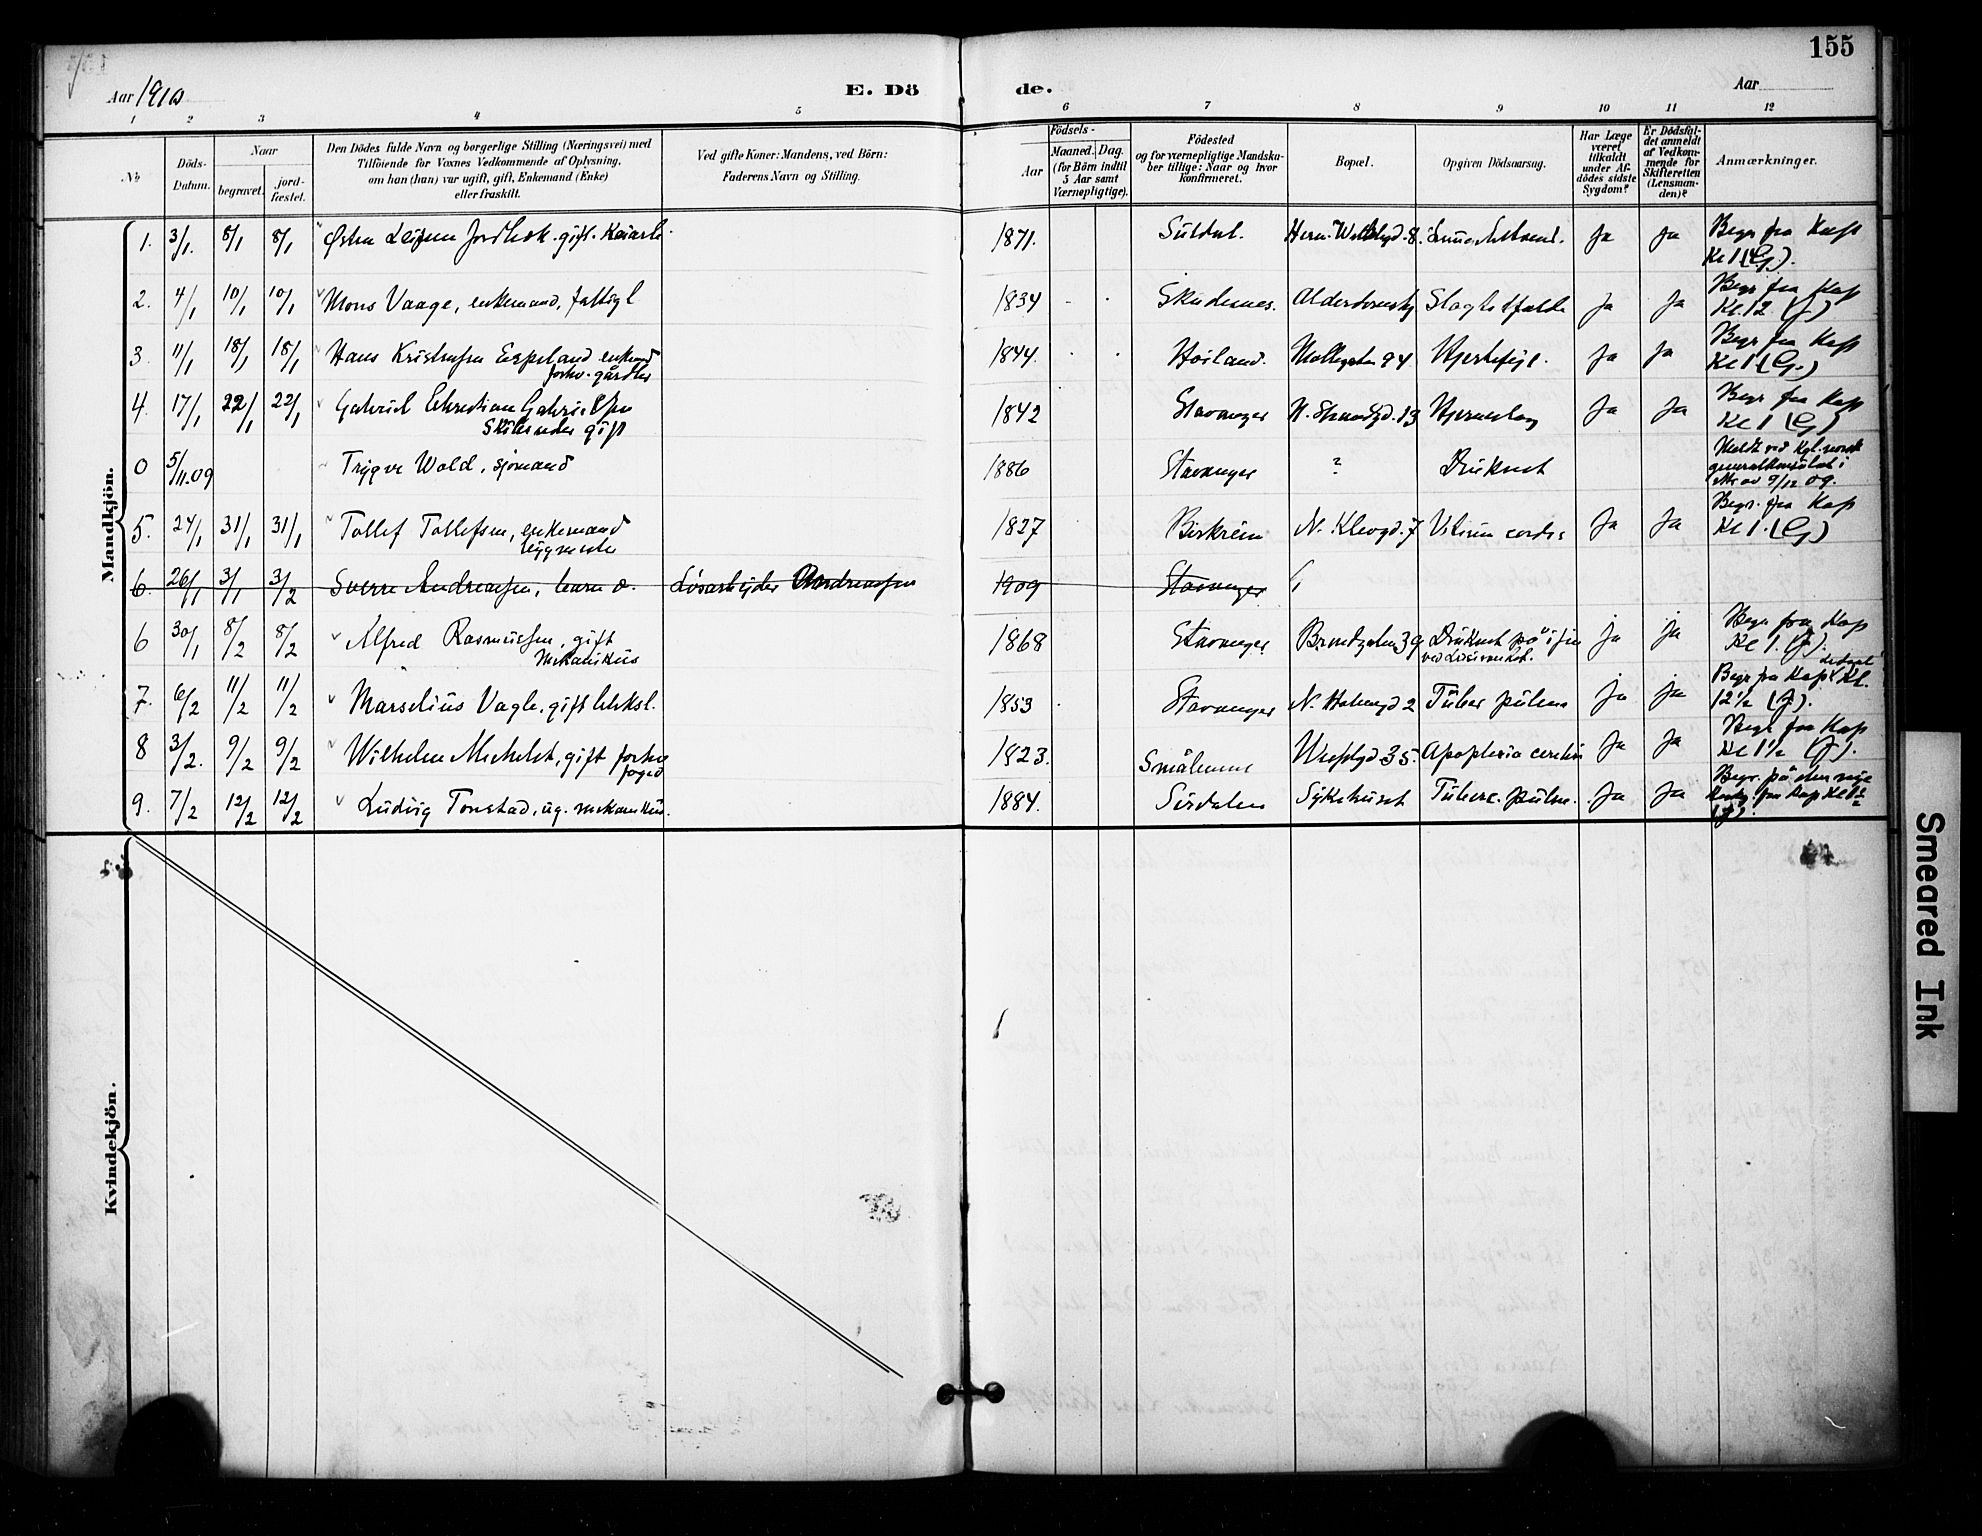 155
Aar 1910
E. Dö de.
Aar
1 2 3 4 5 6 7 8 9 10 11 12
No
Döds-Datum.
Naar
begravet.
jord-fæstet.
Den Dödes fulde Navn og borgerlige Stilling (Næringsvei) med
Tilföiende for Voxnes Vedkommende af Oplysning,
om han (hun) var ugift, gift, Enkemand (Enke)
eller fraskilt.
Ved gifte Koner: Mandens, ved Börn:
Faderens Navn og Stilling.
Födsels-
Aar
Maaned. Dag.
(for Börn indtil
5 Aar samt
Værnepligtige).
Födested
og for værnepligtige Mandska-
ber tillige: Naar og hvor
konfirmeret.
Bopæl.
Opgiven Dödsaarsag.
Har Læge
været
tilkaldt
under Af-
dödes sidste
Sygdom?
Er Dödsfal-
det anmeldt
af Vedkom-
mende for
Skifteretten
(Lensman-
den)?
Anmærkninger.
Mandkjön.
1. 3/1. 8/1 8/1 gift. 1871. Suldal. Ja Ja Begr. fra Kap
Kl 1 (G).
2. 4/1 10/1 10/1 Mons Vaage, enkemand, fattigl 1834 Skudesnes. Ja Ja Begr fra Kap
Kl. 12. (J)
3. 11/1 18/1 18/1 Hans Espeland enkemd
forhv. gårdbr 1844. Høiland. 94 Hjertefejl. Ja Ja Begr fra Kap
Kl 1 (G.)
4. 17/1 22/1 22/1 Gabriel Christian Gabrielsen
Skibsreder gift 1842 Stavanger N. Strandgd. 13 Hjerneslag Ja Ja Begr fra Kap
Kl 1 (G)
0 5/11.09 Trygve Wold, sjømand 1886 Stavanger ? Druknet Meldt ved Kgl. norsk
generalkonsulat i
9/12 09.
5. 24/1 31/1 31/1 Tollef Tollefsen, enkemand 1827 Birkreim N. Klevgd. 7 Vitium cordis Ja Ja Begr. fra Kap
Kl 1. (G)
6. 26/1 3/1 3/2 Sverre Andreassen, barn Løsarbejder Andreassen 1909 Stavanger
6 30/1 8/2 8/2 Alfred Rasmussen, gift
Mekanikus 1868 Stavanger 39 Druknet på Ja Ja Begr fra Kap
Kl 1. (J).
7. 6/2 11/2 11/2 Marselius Vagle, gift 1853 Stavanger N. Holmegd 2 Tuber pulm Ja Ja Begr fra Kap Kl.
12½ (J).
8 3/2. 9/2 9/2 Wilhelm Michelet, gift forhv
foged 1823. Smålenene 35. Apoplexia cerebri Ja Ja Begr fra Kap
Kl 1½ (J).
9. 7/2 12/2 12/2 Ludvig Tonstad, ug. mekanikus. 1884. Sirdalen Sykehuset Tuberc. pulm. Ja Ja Begr. på den nye
fra Kap
(J).
Kvindekjön.
Smeared Ink